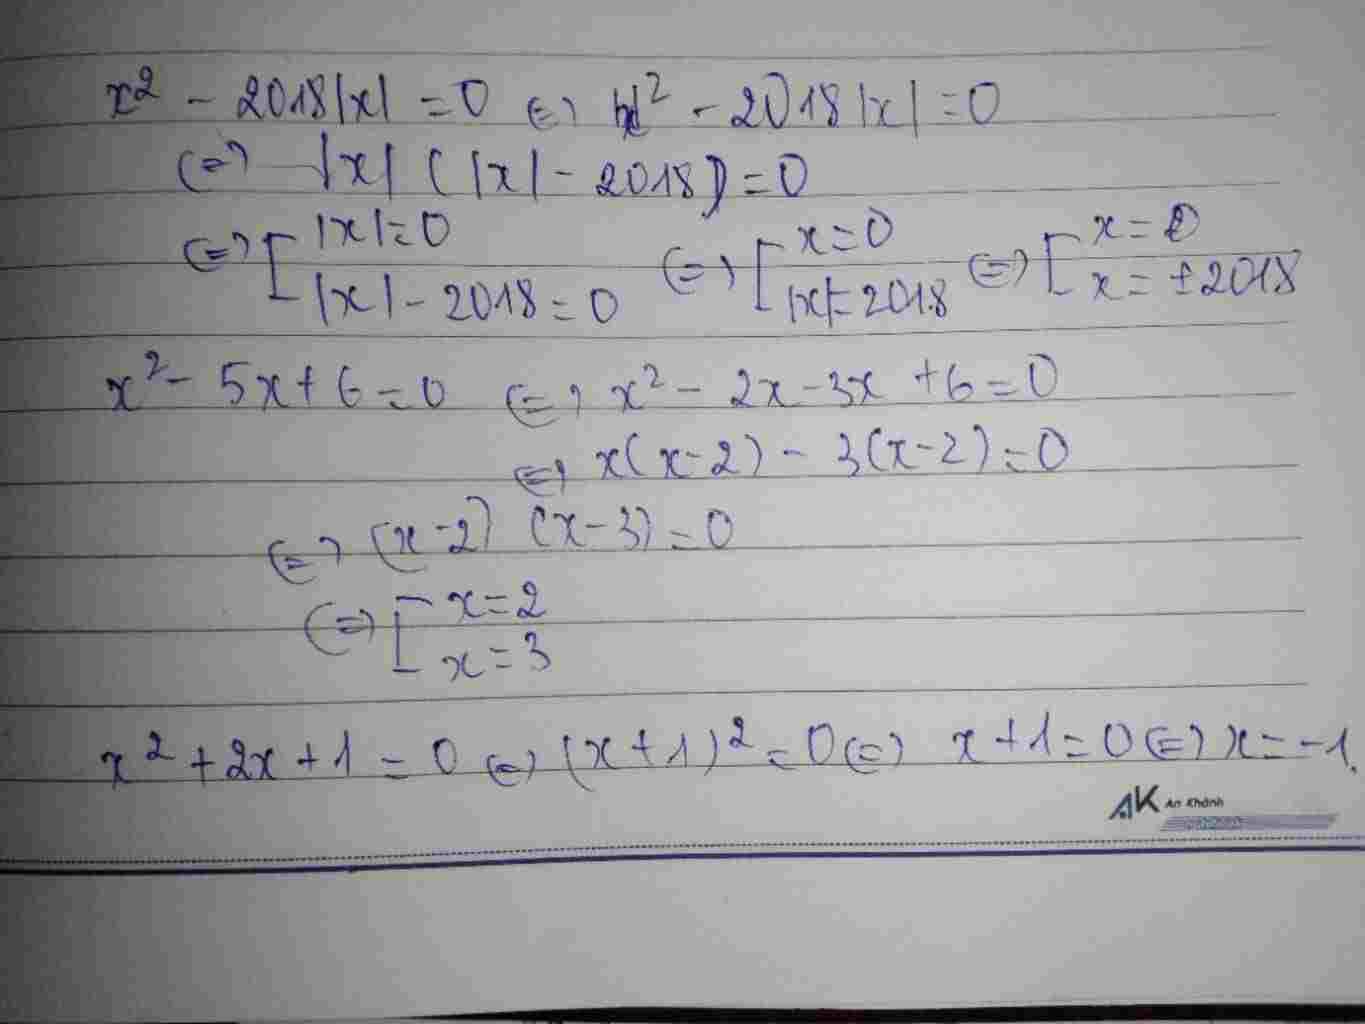 x² - 2018|x| = 0 <=> |x|² - 2018|x| = 0
<=> |x| (|x| - 2018) = 0
<=> [ |x| = 0 <=> [ x = 0 <=> [ x = 0
|x| - 2018 = 0 |x| = 2018 x = ±2018
x² - 5x + 6 = 0 <=> x² - 2x - 3x + 6 = 0
<=> x(x-2) - 3(x-2) = 0
<=> (x-2) (x-3) = 0
<=> [ x = 2
x = 3
x² + 2x + 1 = 0 <=> (x+1)² = 0 <=> x+1 = 0 <=> x = -1.
AK An Khánh